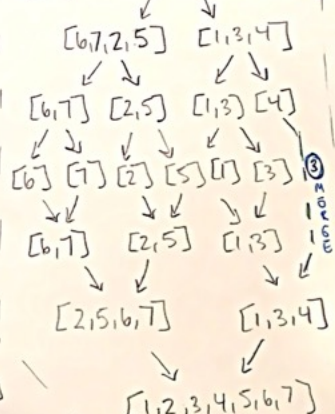 [6,7,2,5] [1,3,4]
[6,7] [2,5] [1,3] [4]
[6] [7] [2] [5] [1] [3]
3 MERGE
[6,7] [2,5] [1,3]
[2,5,6,7] [1,3,4]
[1,2,3,4,5,6,7]